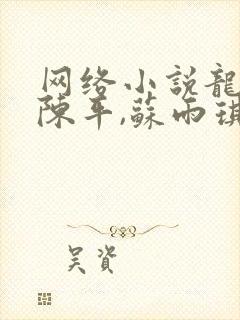 网络小説龍
陳平,蘇雨琪
吴資